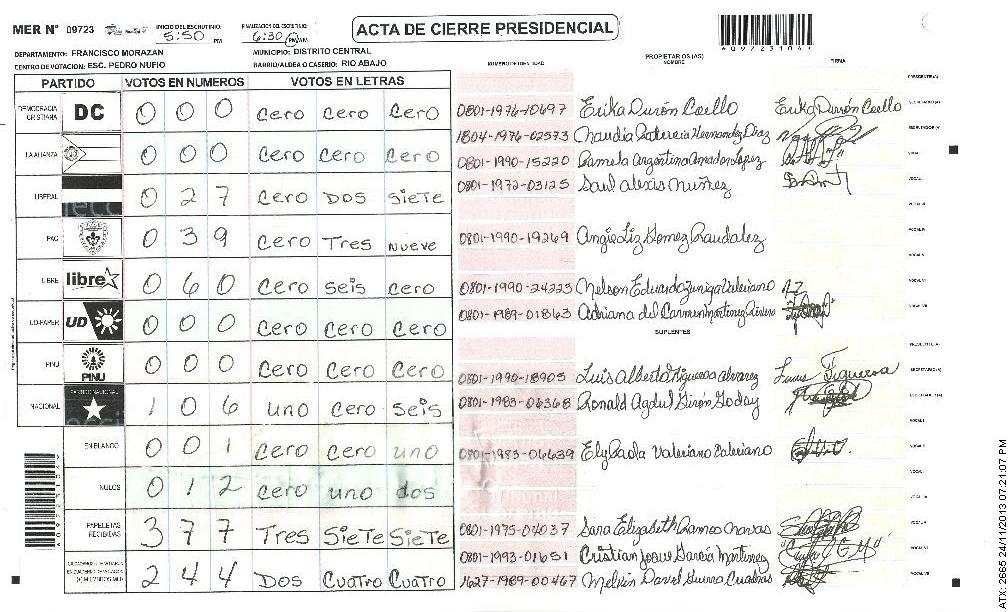 MER N° 09723
INICIO DEL ESCRUTINIO: 5:50 PM
FINALIZACION DEL ESCRUTINIO: 6:30 PM/AM
ACTA DE CIERRE PRESIDENCIAL
DEPARTAMENTO: FRANCISCO MORAZAN
MUNICIPIO: DISTRITO CENTRAL
CENTRO DE VOTACION: ESC. PEDRO NUFIO
BARRIO/ALDEA O CASERIO: RIO ABAJO
NUMERO DE IDENTIDAD
PROPIETARIOS (AS)
NOMBRE
FIRMA
PARTIDO VOTOS EN NUMEROS VOTOS EN LETRAS
DEMOCRACIA CRISTIANA DC 0 0 0 cero cero cero
LA ALIANZA 0 0 0 cero cero cero
LIBERAL 0 2 7 cero Dos Siete
PAC 0 3 9 cero Tres nueve
LIBRE libre 0 6 0 cero seis cero
UD-FAPER UD 0 0 0 cero cero cero
PINU PINU 0 0 0 cero cero cero
NACIONAL 1 0 6 uno cero seis
EN BLANCO 0 0 1 cero cero uno
NULOS 0 1 2 cero uno dos
PAPELETAS RECIBIDAS 3 7 7 Tres Siete Siete
2 4 4 Dos Cuatro Cuatro
0801-1976-10697 Erika Durón Coello Erika Durón Coello
1804-1976-02573
0801-1990-15220 Pamela Argentina Amador Lopez
0801-1972-03125 Saul alexis nuñez
0801-1990-19269 Angie Liz Gomez
0801-1990-24223 Nelson Eduardo Zuniga Valeriano
0801-1989-01863 Adriana del Carmen Martinez
SUPLENTES
0801-1990-18905 Luis Alberto Figueroa alvarez
0801-1983-06368 Ronald
0801-1983-06639 Ely Paola Valeriano Valeriano
0801-1975-04037 Sara Elizabeth Ramos
0801-1993-01651 Cristian josue García Martinez
1627-1989-00467
ATX-2665 24/11/2013 07:21:07 PM